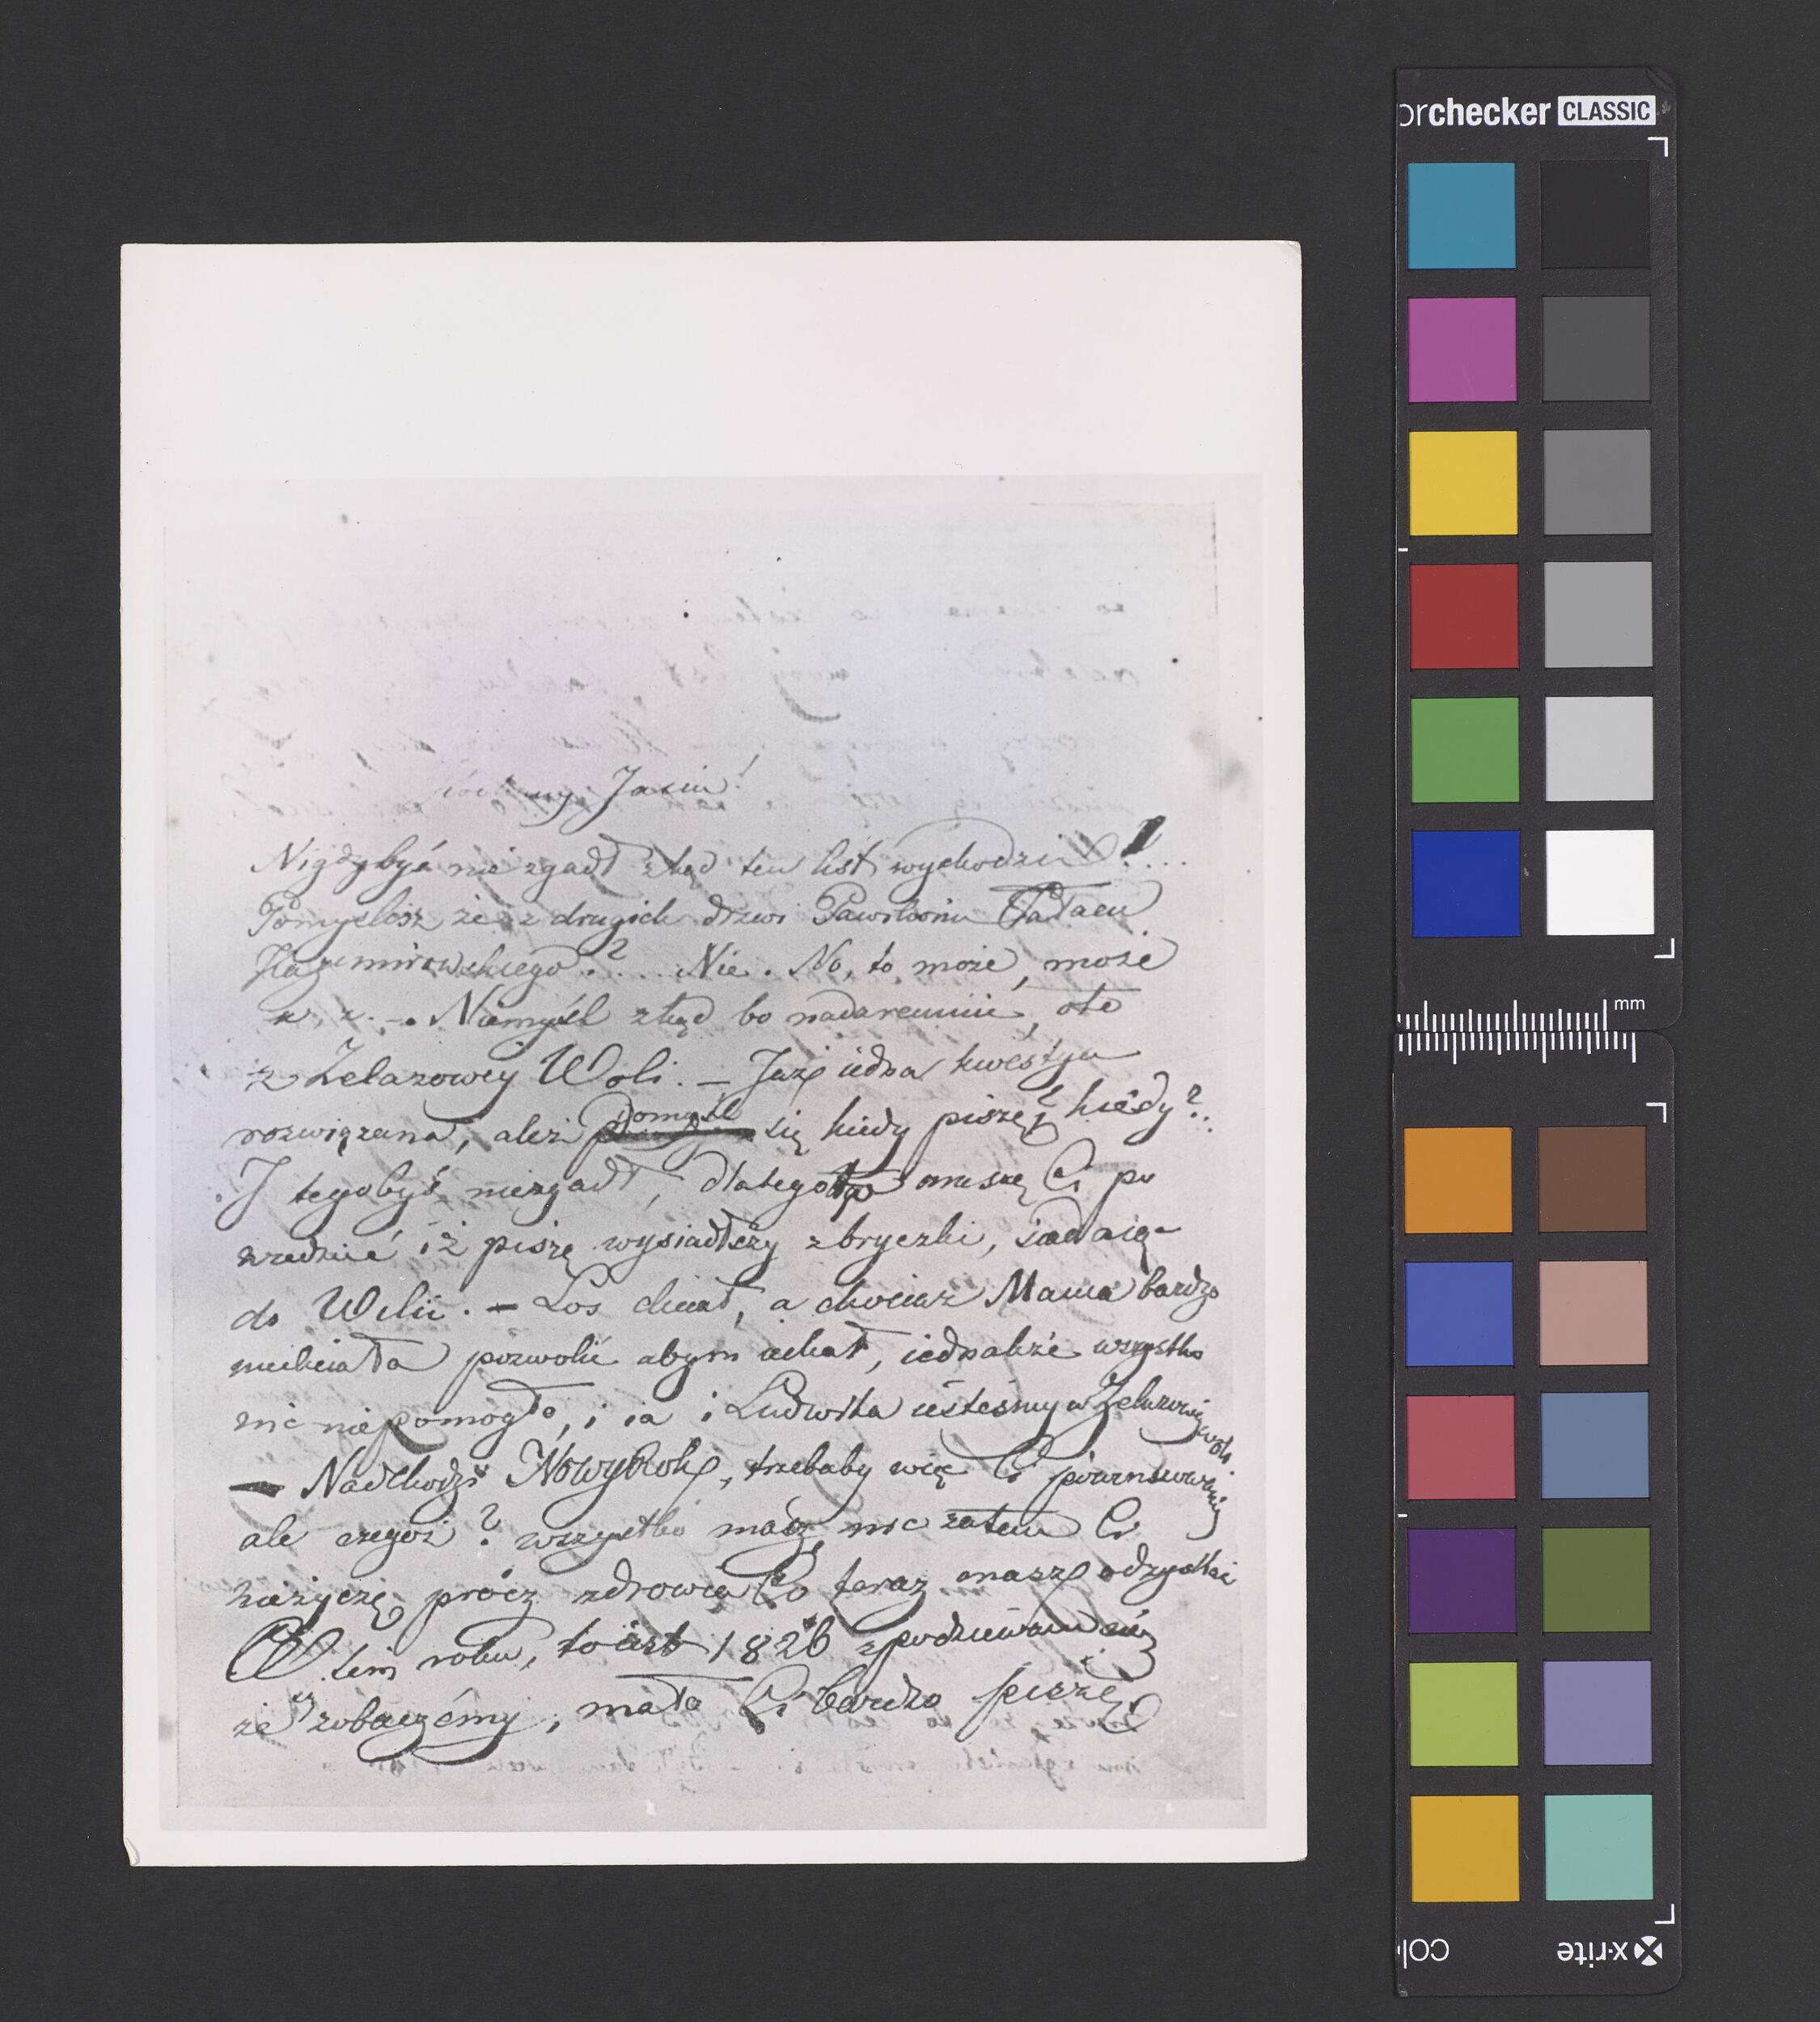 Jasiu!
Nigdybyś nie zgadł zkąd ten list wychodzi!...
Pomyślisz że z drugich drzwi Pawilonu Pałacu
Kazimirowskiego?.... Nie. No, to może, może
z, z. — Niemyśl zkąd bo nadaremnie, oto
z Żelazowey Woli. — Już iedna kwestya
rozwiązana, ależ domyśl się kiedy piszę? kiedy?..
I tegobyś niezgadł, dlatego muszę Ci po
wiedzieć iż piszę wysiadłszy z bryczki, siadaiąc
do Wilii. — Los chciał, a chociaż Mama bardzo
niechciała pozwolić abym iechał, iednakże wszystko
nic niepomogło, i ia i Ludwika iesteśmy w Żelazowey Woli.
— Nadchodzi Nowy Rok, trzebaby więc Ci powinszować
ale czegoż? wszystko masz, nic zatem Ci
nieżyczę prócz zdrowia Co teraz masz odzyskać
W tem roku, to iest 1826 spodziewam się
że się zobaczémy, mało Ci bardzo piszę
orchecker CLASSIC
mm
x-rite
col